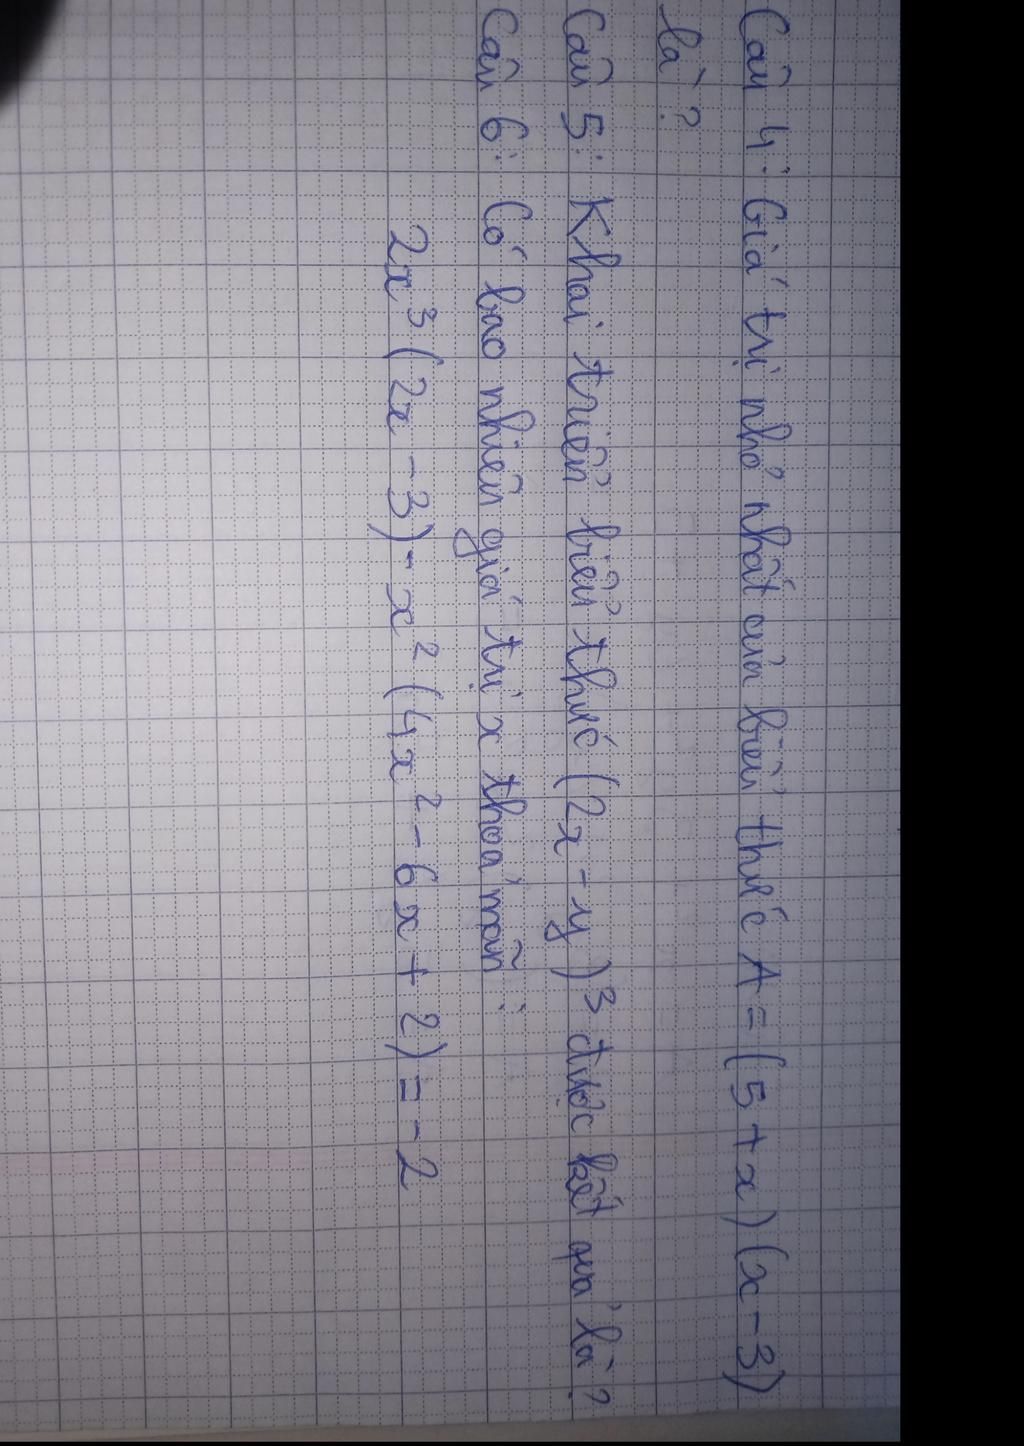 Câu 4: Giá trị nhỏ nhất của biểu thức A = (5 + x) (x - 3)
là ?
Câu 5: Khai triển biểu thức (2x - y)³ được kết quả là ?
Câu 6: Có bao nhiêu giá trị x thoả mãn :
2x³ (2x - 3) - x² (4x² - 6x + 2) = -2